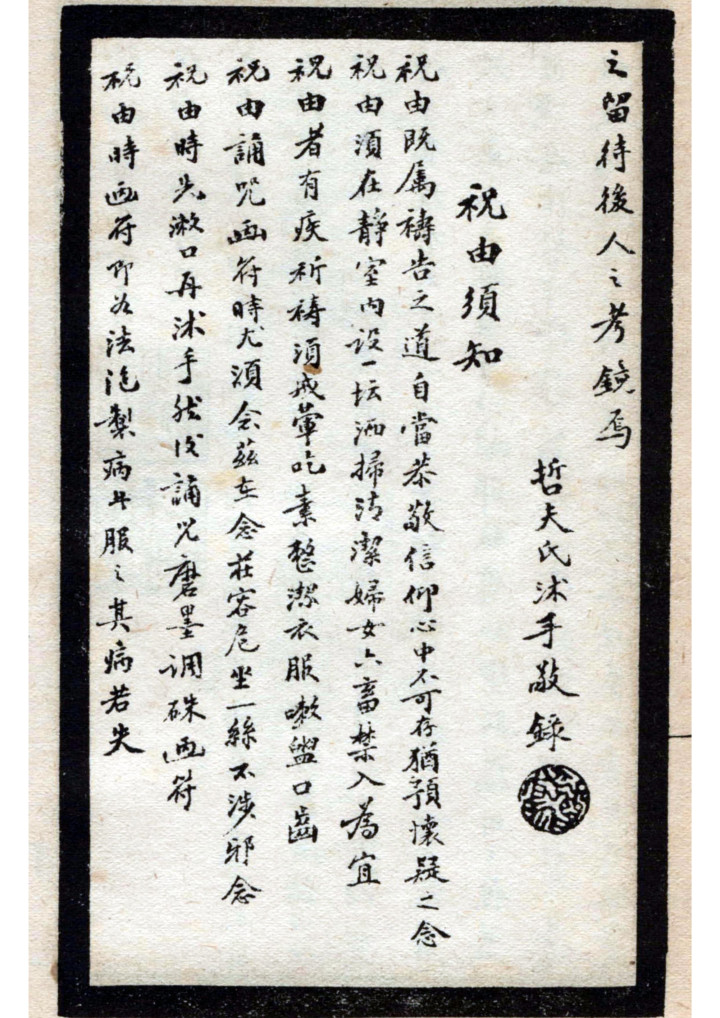 之留待後人之考鏡焉
哲夫氏沭手敬錄
祝由須知
祝由既属禱告之道自當恭敬信仰心中不可存猶預懷疑之念
祝由須在静室内设一坛洒掃清潔婦女六畜禁入為宜
祝由者有疾祈禱須戒葷吃素整潔衣服嗽盥口齒
祝由誦咒画符時尤須念茲在念莊容危坐一絲不涉邪念
祝由時先漱口再沭手然後誦咒磨墨调硃画符
祝由時画符即為法泡製病者服之其病若失